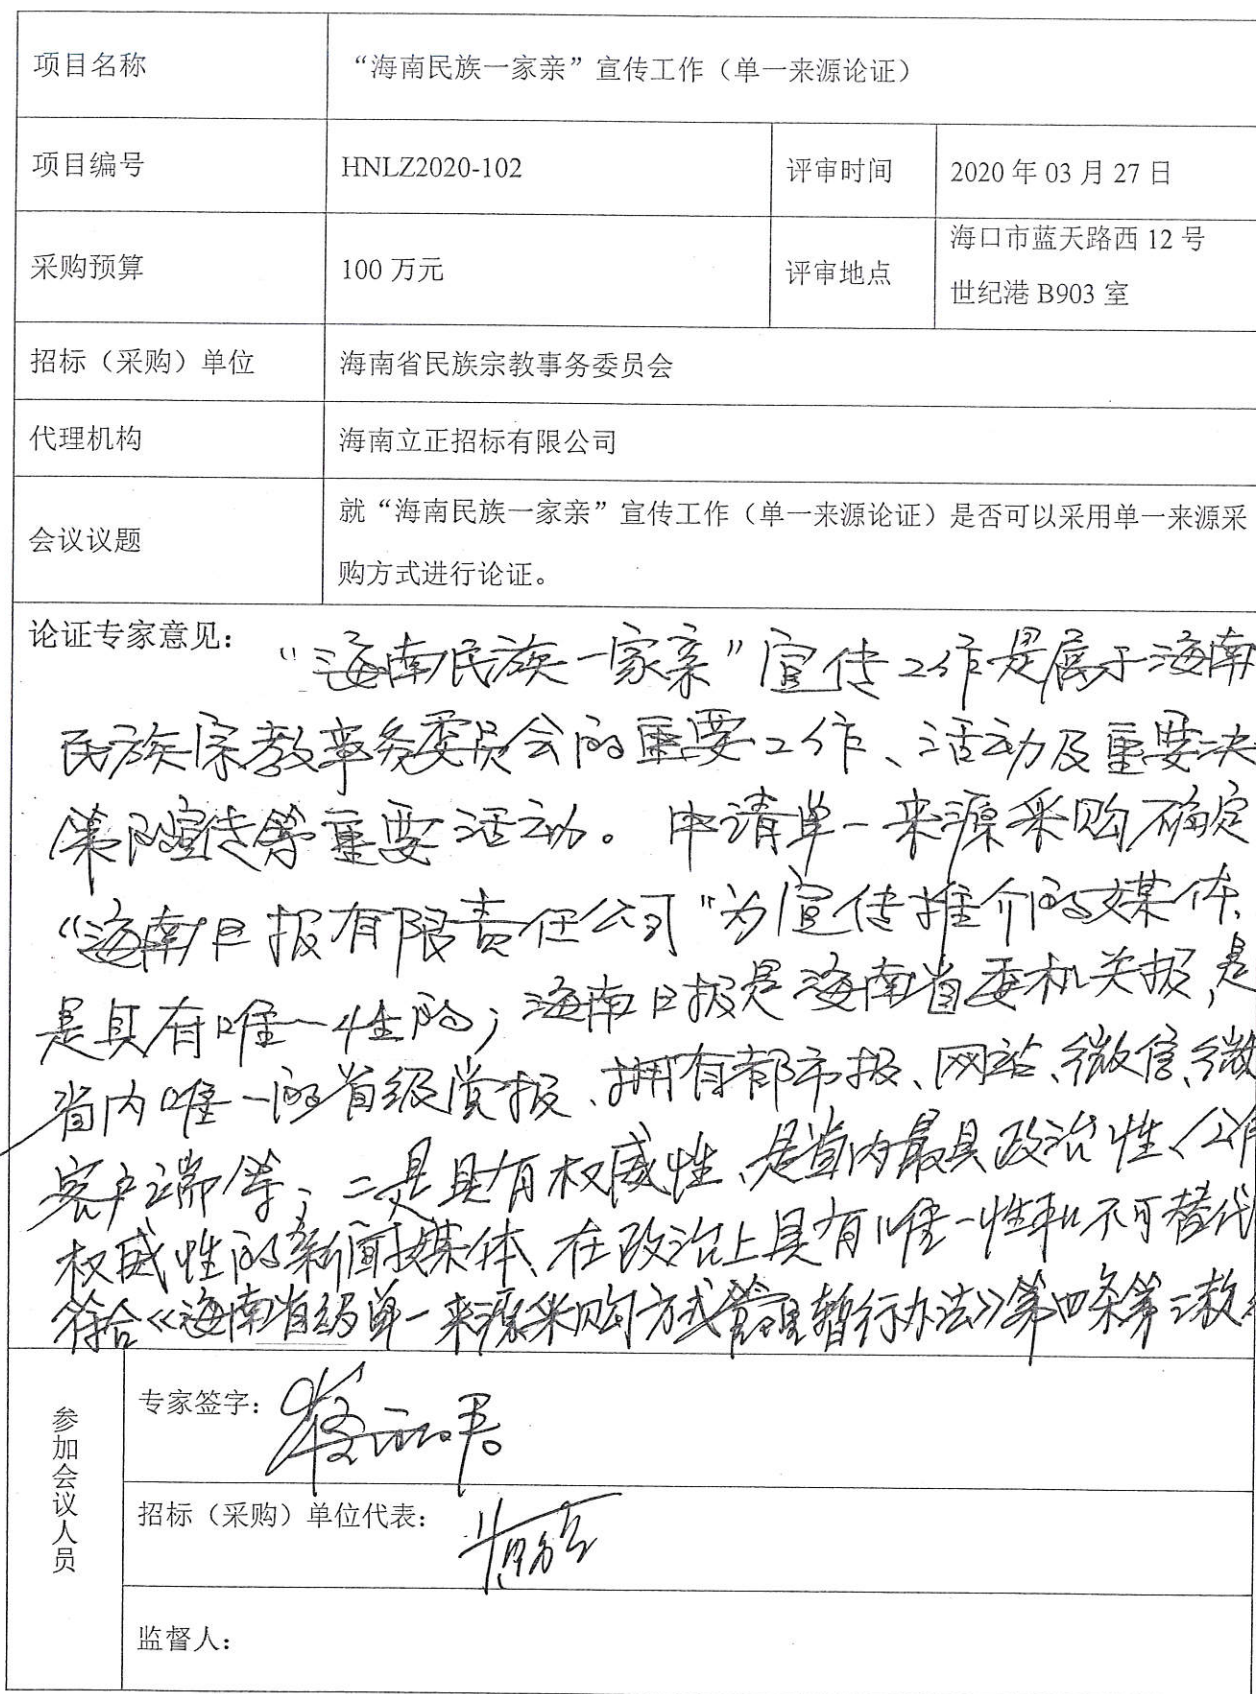 项目名称
“海南民族一家亲”宣传工作（单一来源论证）
项目编号
HNLZ2020-102
评审时间
2020 年 03 月 27 日
采购预算
100 万元
评审地点
海口市蓝天路西 12 号
世纪港 B903 室
招标（采购）单位
海南省民族宗教事务委员会
代理机构
海南立正招标有限公司
会议议题
就“海南民族一家亲”宣传工作（单一来源论证）是否可以采用单一来源采
购方式进行论证。
论证专家意见：
“海南民族一家亲”宣传工作是属于海南
民族宗教事务委员会的重要工作、活动及重要决
策的宣传等重要活动。申请单一来源采购确定
“海南日报有限责任公司”为宣传推介的媒体、
是具有唯一性的；海南日报是海南省委机关报，是
省内唯一的省级党报、拥有都市报、网站、微信、微
客户端等；二是具有权威性、是省内最具政治性、公信
权威性的新闻媒体、在政治上具有唯一性和不可替代
符合《海南省级单一来源采购方式管理暂行办法》第四条第二款
参加会议人员
专家签字：
招标（采购）单位代表：
监督人：